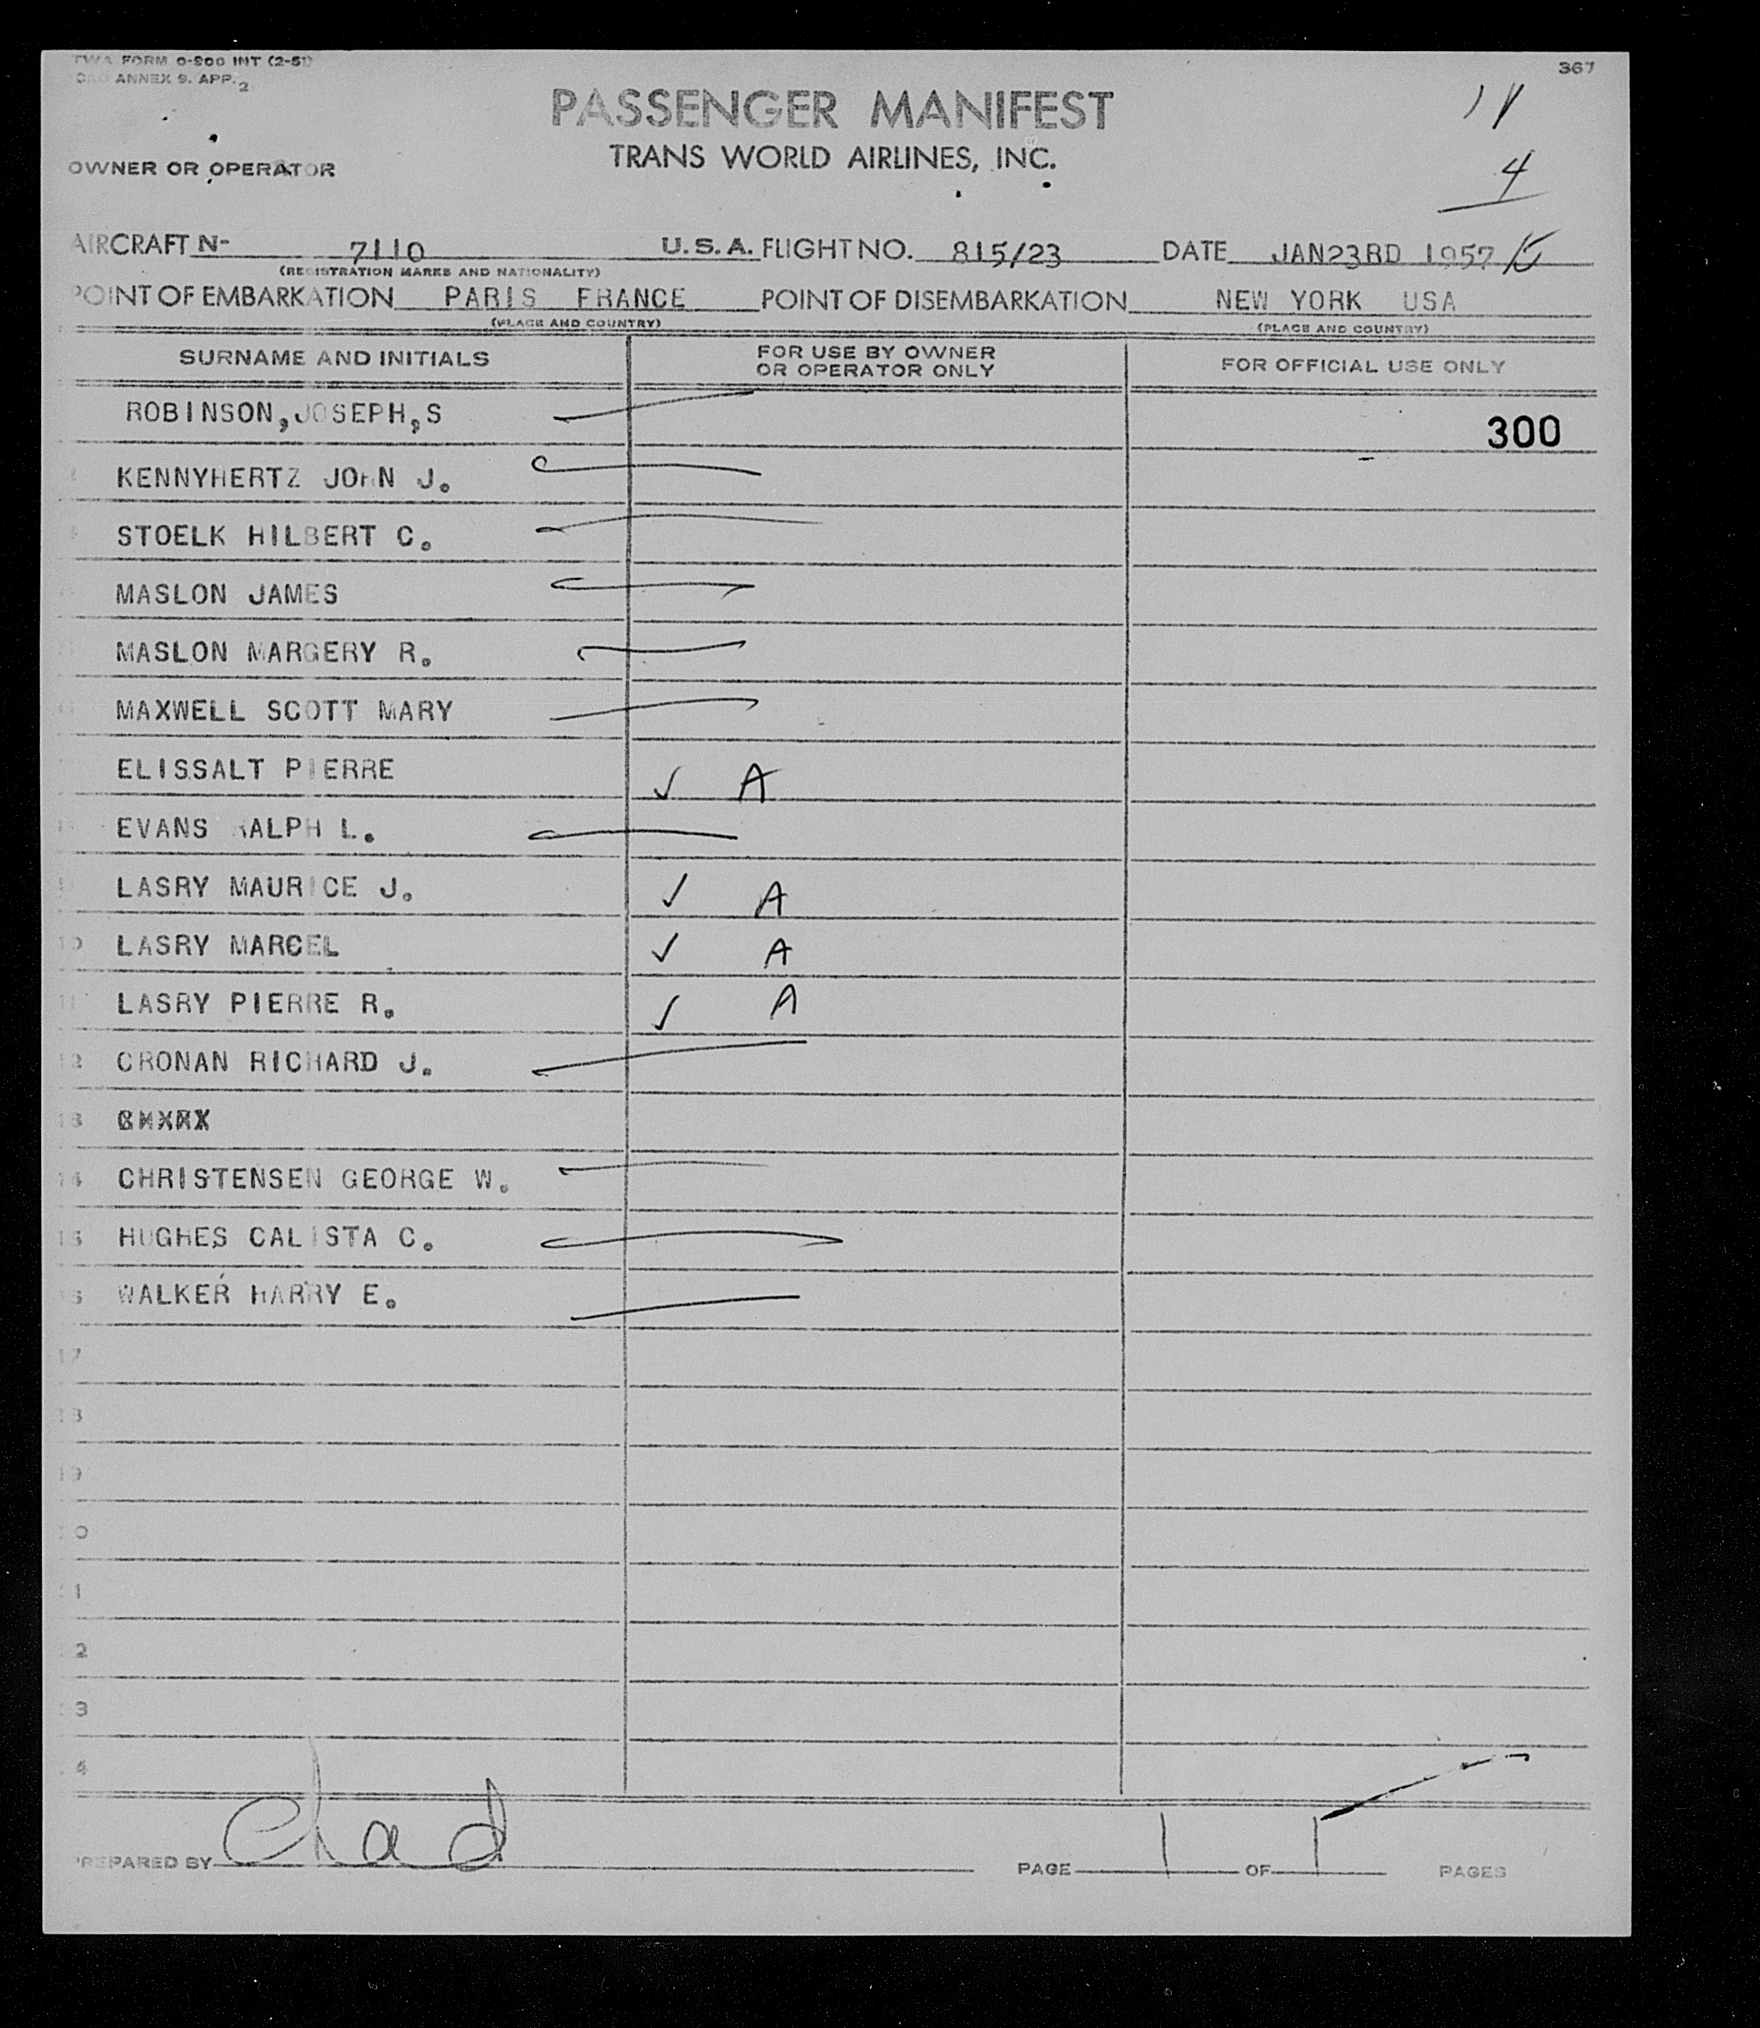 TWA FORM O-800 INT (2-51)
ICAO ANNEX 9. APP. 2
367
PASSENGER MANIFEST
TRANS WORLD AIRLINES, INC.
11
4
OWNER OR OPERATOR
AIRCRAFT N- 7110 U.S.A. FLIGHT NO. 815/23 DATE JAN23RD 1957 15
(REGISTRATION MARKS AND NATIONALITY)
POINT OF EMBARKATION PARIS FRANCE POINT OF DISEMBARKATION NEW YORK USA
(PLACE AND COUNTRY) (PLACE AND COUNTRY)
SURNAME AND INITIALS FOR USE BY OWNER OR OPERATOR ONLY FOR OFFICIAL USE ONLY
ROBINSON,JOSEPH,S 300
KENNYHERTZ JOHN J.
STOELK HILBERT C.
MASLON JAMES
MASLON MARGERY R.
MAXWELL SCOTT MARY
ELISSALT PIERRE ✓ A
EVANS RALPH L.
9 LASRY MAURICE J. ✓ A
10 LASRY MARCEL ✓ A
11 LASRY PIERRE R. ✓ A
12 CRONAN RICHARD J.
13
14 CHRISTENSEN GEORGE W.
15 HUGHES CALISTA C.
16 WALKER HARRY E.
17
18
19
20
21
22
23
24
PREPARED BY Chad PAGE 1 OF 1 PAGES